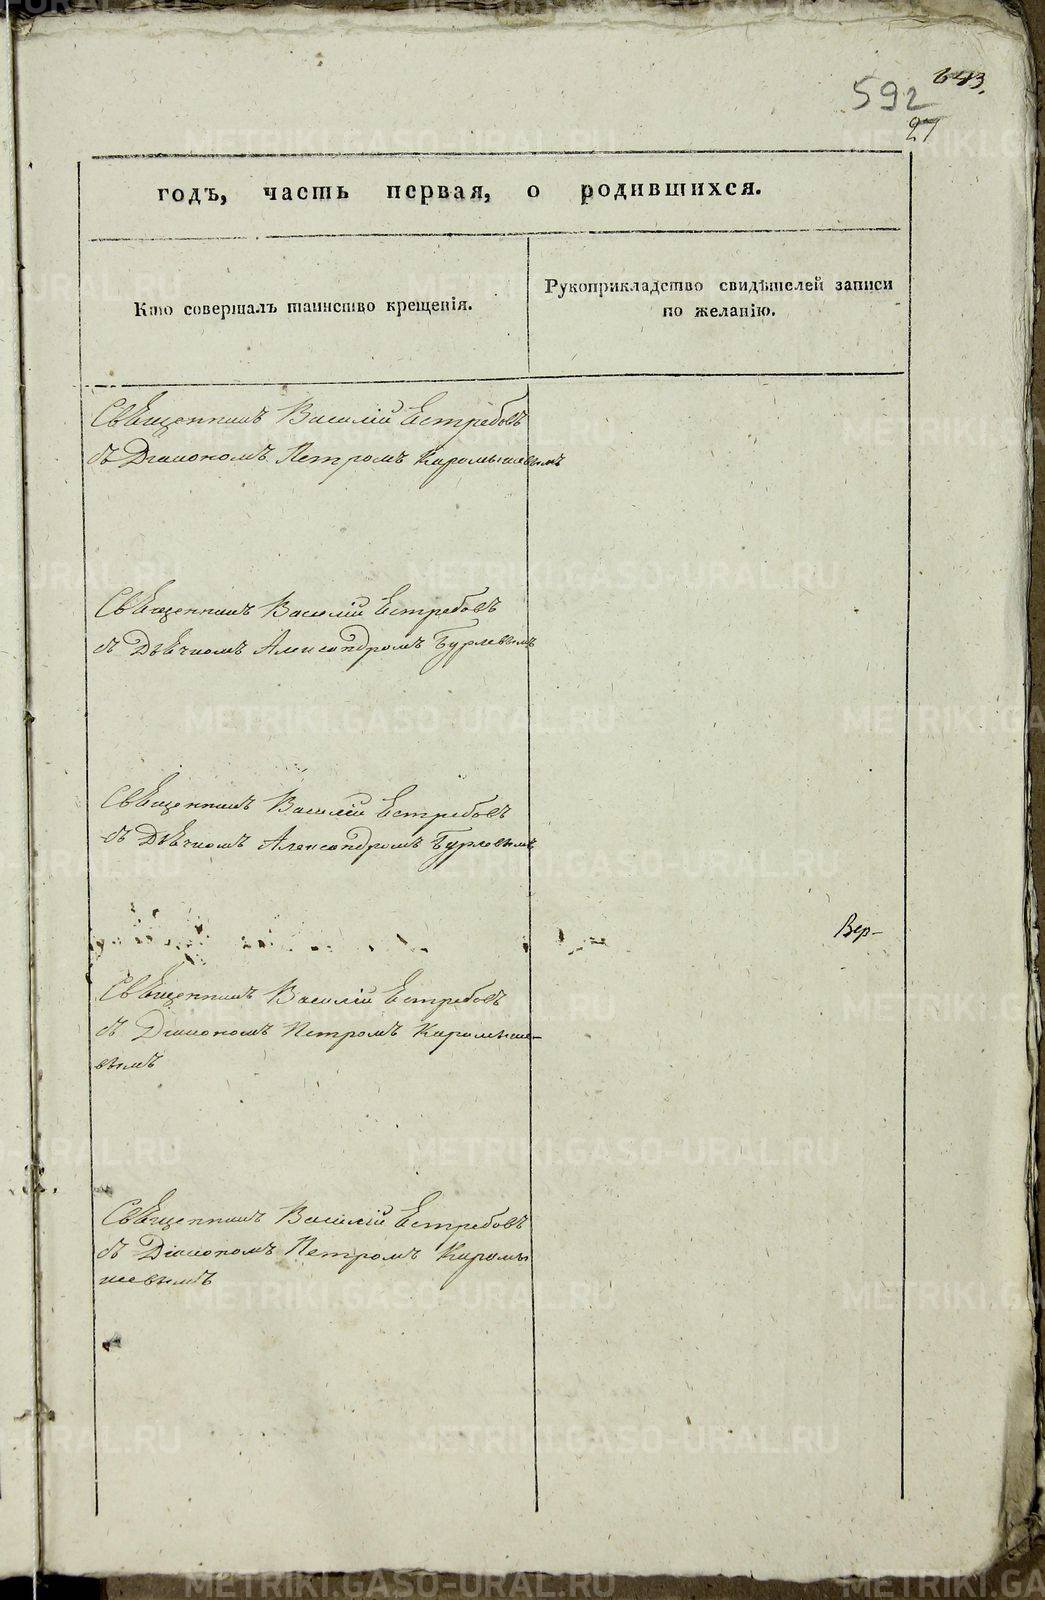 643.
592
27
годъ, часть первая, о родившихся.
Кто совершалъ таинство крещенія.
Рукоприкладство свидѣтелей записи
по желанію.
Священникъ Василій Ястребовъ
съ Діакономъ Петромъ Карамышевымъ
Священникъ Василій Ястребовъ
съ Дьячкомъ Александромъ Бурлевымъ
Священникъ Василій Ястребовъ
съ Дьячкомъ Александромъ Бурлевымъ
Вер-
Священникъ Василій Ястребовъ
съ Діакономъ Петромъ Карамыше-
вымъ
Священникъ Василій Ястребовъ
съ Діакономъ Петромъ Карамы
шевымъ
METRIKI.GASO-URAL.RU